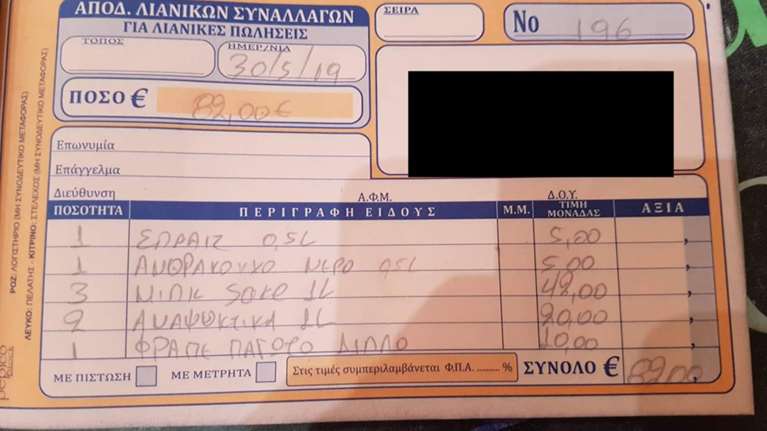 ΑΠΟΔ. ΛΙΑΝΙΚΩΝ ΣΥΝΑΛΛΑΓΩΝ
ΓΙΑ ΛΙΑΝΙΚΕΣ ΠΩΛΗΣΕΙΣ
ΣΕΙΡΑ
No 196
ΤΟΠΟΣ
ΗΜΕΡ/ΝΙΑ
30/5/19
ΠΟΣΟ € 82,00€
Επωνυμία
Επάγγελμα
Διεύθυνση Α.Φ.Μ. Δ.Ο.Υ.
ΠΟΣΟΤΗΤΑ ΠΕΡΙΓΡΑΦΗ ΕΙΔΟΥΣ Μ.Μ. ΤΙΜΗ ΜΟΝΑΔΑΣ ΑΞΙΑ
1 ΣΠΡΑΙΤ 0,5L 5,00
1 ΑΝΘΡΑΚΟΥΧΟ ΝΕΡΟ 0,5L 5,00
3 1L 42,00
2 ΑΝΑΨΥΚΤΙΚΑ 1L 20,00
1 ΦΡΑΠΕ ΠΑΓΩΤΟ ΔΙΠΛΟ 10,00
ΜΕ ΠΙΣΤΩΣΗ ΜΕ ΜΕΤΡΗΤΑ Στις τιμές συμπεριλαμβάνεται Φ.Π.Α. ......... % ΣΥΝΟΛΟ € 82,00
ΡΟΖ: ΛΟΓΙΣΤΗΡΙΟ (ΜΗ ΣΥΝΟΔΕΥΤΙΚΟ ΜΕΤΑΦΟΡΑΣ)
ΛΕΥΚΟ: ΠΕΛΑΤΗΣ - ΚΙΤΡΙΝΟ: ΣΤΕΛΕΧΟΣ (ΜΗ ΣΥΝΟΔΕΥΤΙΚΟ ΜΕΤΑΦΟΡΑΣ)